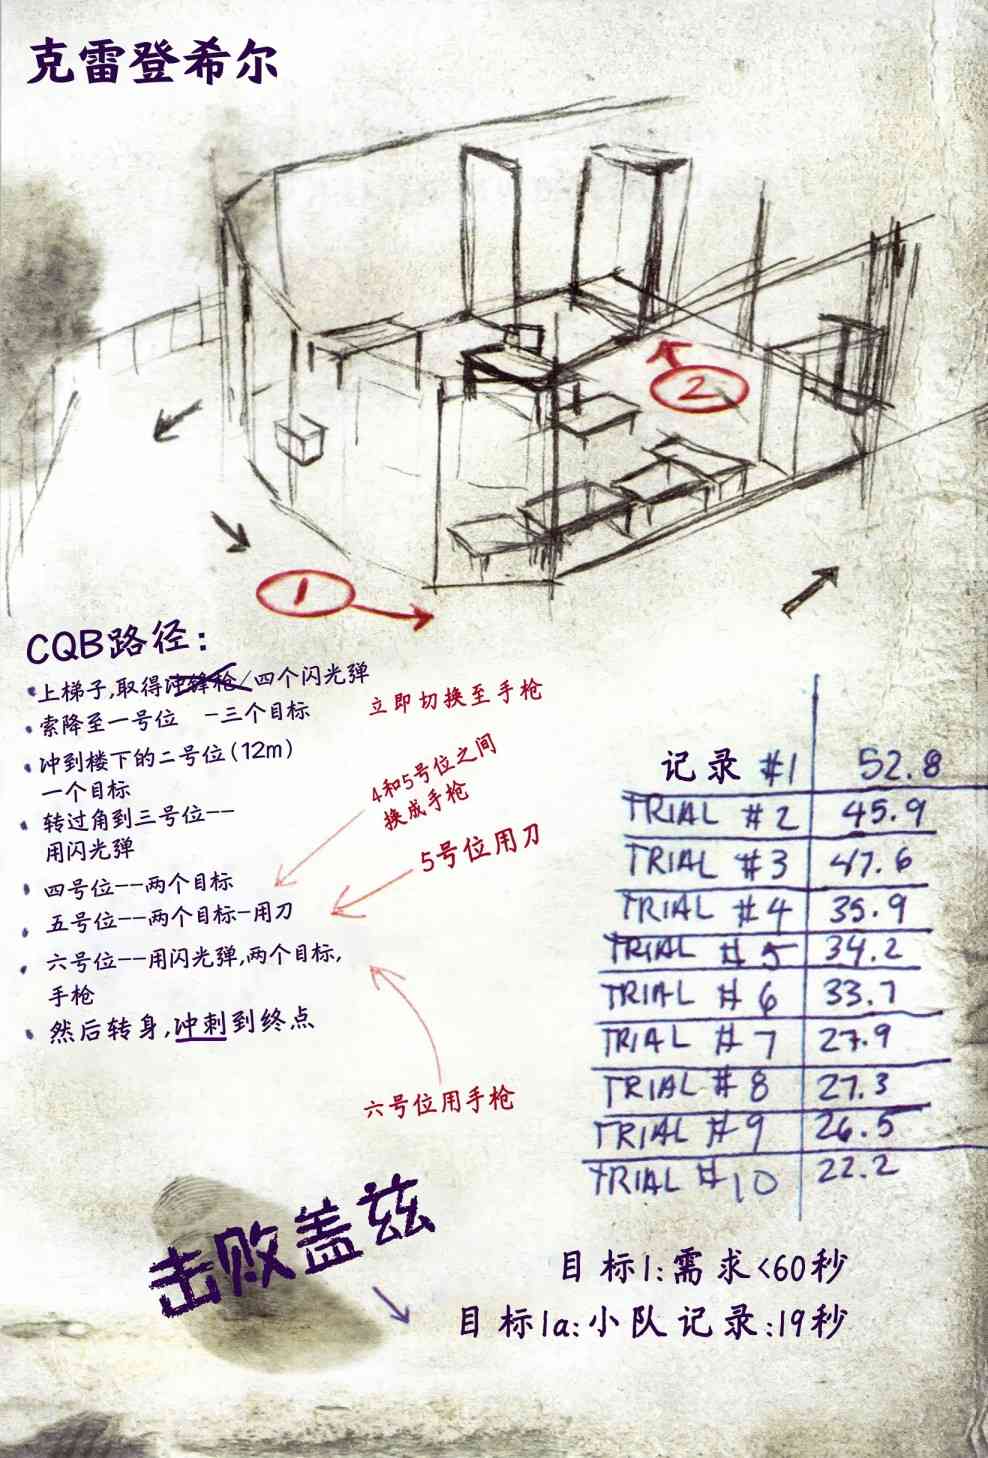 克雷登希尔
2
1
CQB路径：
·上梯子,取得冲锋枪/四个闪光弹
立即切换至手枪
·索降至一号位 -三个目标
·冲到楼下的二号位(12m)
一个目标
4和5号位之间
换成手枪
·转过角到三号位--
用闪光弹
5号位用刀
·四号位--两个目标
·五号位--两个目标-用刀
·六号位--用闪光弹,两个目标,
手枪
·然后转身,冲刺到终点
六号位用手枪
记录 #1 52.8
TRIAL #2 45.9
TRIAL #3 47.6
TRIAL #4 35.9
TRIAL #5 34.2
TRIAL #6 33.7
TRIAL #7 27.9
TRIAL #8 27.3
TRIAL #9 26.5
TRIAL #10 22.2
击败盖兹
目标1:需求<60秒
目标1a:小队记录:19秒